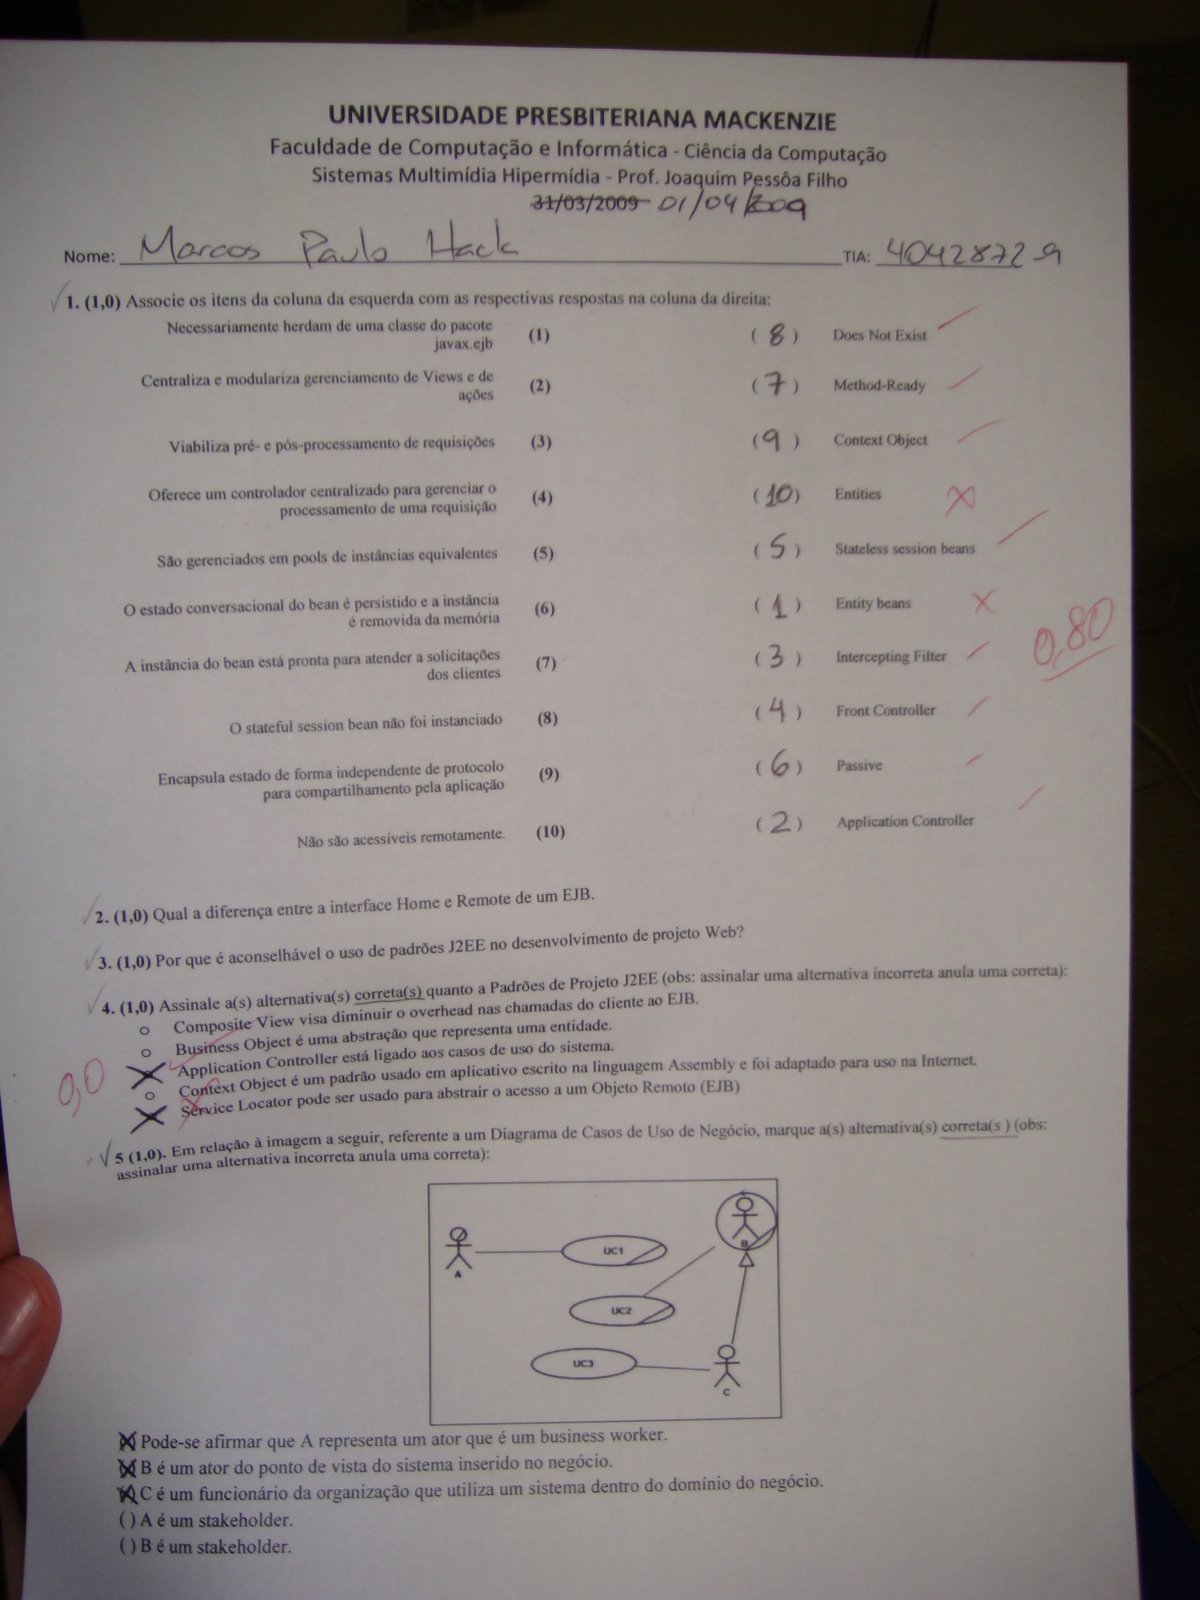 UNIVERSIDADE PRESBITERIANA MACKENZIE
Faculdade de Computação e Informática - Ciência da Computação
Sistemas Multimídia Hipermídia - Prof. Joaquim Pessôa Filho
31/03/2009 01/04/2009
Nome: Marcos Paulo Hack TIA: 4042872-9
1. (1,0) Associe os itens da coluna da esquerda com as respectivas respostas na coluna da direita:
Necessariamente herdam de uma classe do pacote
javax.ejb (1) ( 8 ) Does Not Exist
Centraliza e modulariza gerenciamento de Views e de
ações (2) ( 7 ) Method-Ready
Viabiliza pré- e pós-processamento de requisições (3) ( 9 ) Context Object
Oferece um controlador centralizado para gerenciar o
processamento de uma requisição (4) ( 10 ) Entities
São gerenciados em pools de instâncias equivalentes (5) ( 5 ) Stateless session beans
O estado conversacional do bean é persistido e a instância
é removida da memória (6) ( 1 ) Entity beans
A instância do bean está pronta para atender a solicitações
dos clientes (7) ( 3 ) Intercepting Filter
0,80
O stateful session bean não foi instanciado (8) ( 4 ) Front Controller
Encapsula estado de forma independente de protocolo
para compartilhamento pela aplicação (9) ( 6 ) Passive
Não são acessíveis remotamente. (10) ( 2 ) Application Controller
2. (1,0) Qual a diferença entre a interface Home e Remote de um EJB.
3. (1,0) Por que é aconselhável o uso de padrões J2EE no desenvolvimento de projeto Web?
4. (1,0) Assinale a(s) alternativa(s) correta(s) quanto a Padrões de Projeto J2EE (obs: assinalar uma alternativa incorreta anula uma correta):
o Composite View visa diminuir o overhead nas chamadas do cliente ao EJB.
o Business Object é uma abstração que representa uma entidade.
X Application Controller está ligado aos casos de uso do sistema.
o Context Object é um padrão usado em aplicativo escrito na linguagem Assembly e foi adaptado para uso na Internet.
X Service Locator pode ser usado para abstrair o acesso a um Objeto Remoto (EJB)
0,0
5 (1,0). Em relação à imagem a seguir, referente a um Diagrama de Casos de Uso de Negócio, marque a(s) alternativa(s) correta(s ) (obs:
assinalar uma alternativa incorreta anula uma correta):
UC1
B
A
UC2
UC3
C
(X) Pode-se afirmar que A representa um ator que é um business worker.
(X) B é um ator do ponto de vista do sistema inserido no negócio.
(X) C é um funcionário da organização que utiliza um sistema dentro do domínio do negócio.
( ) A é um stakeholder.
( ) B é um stakeholder.